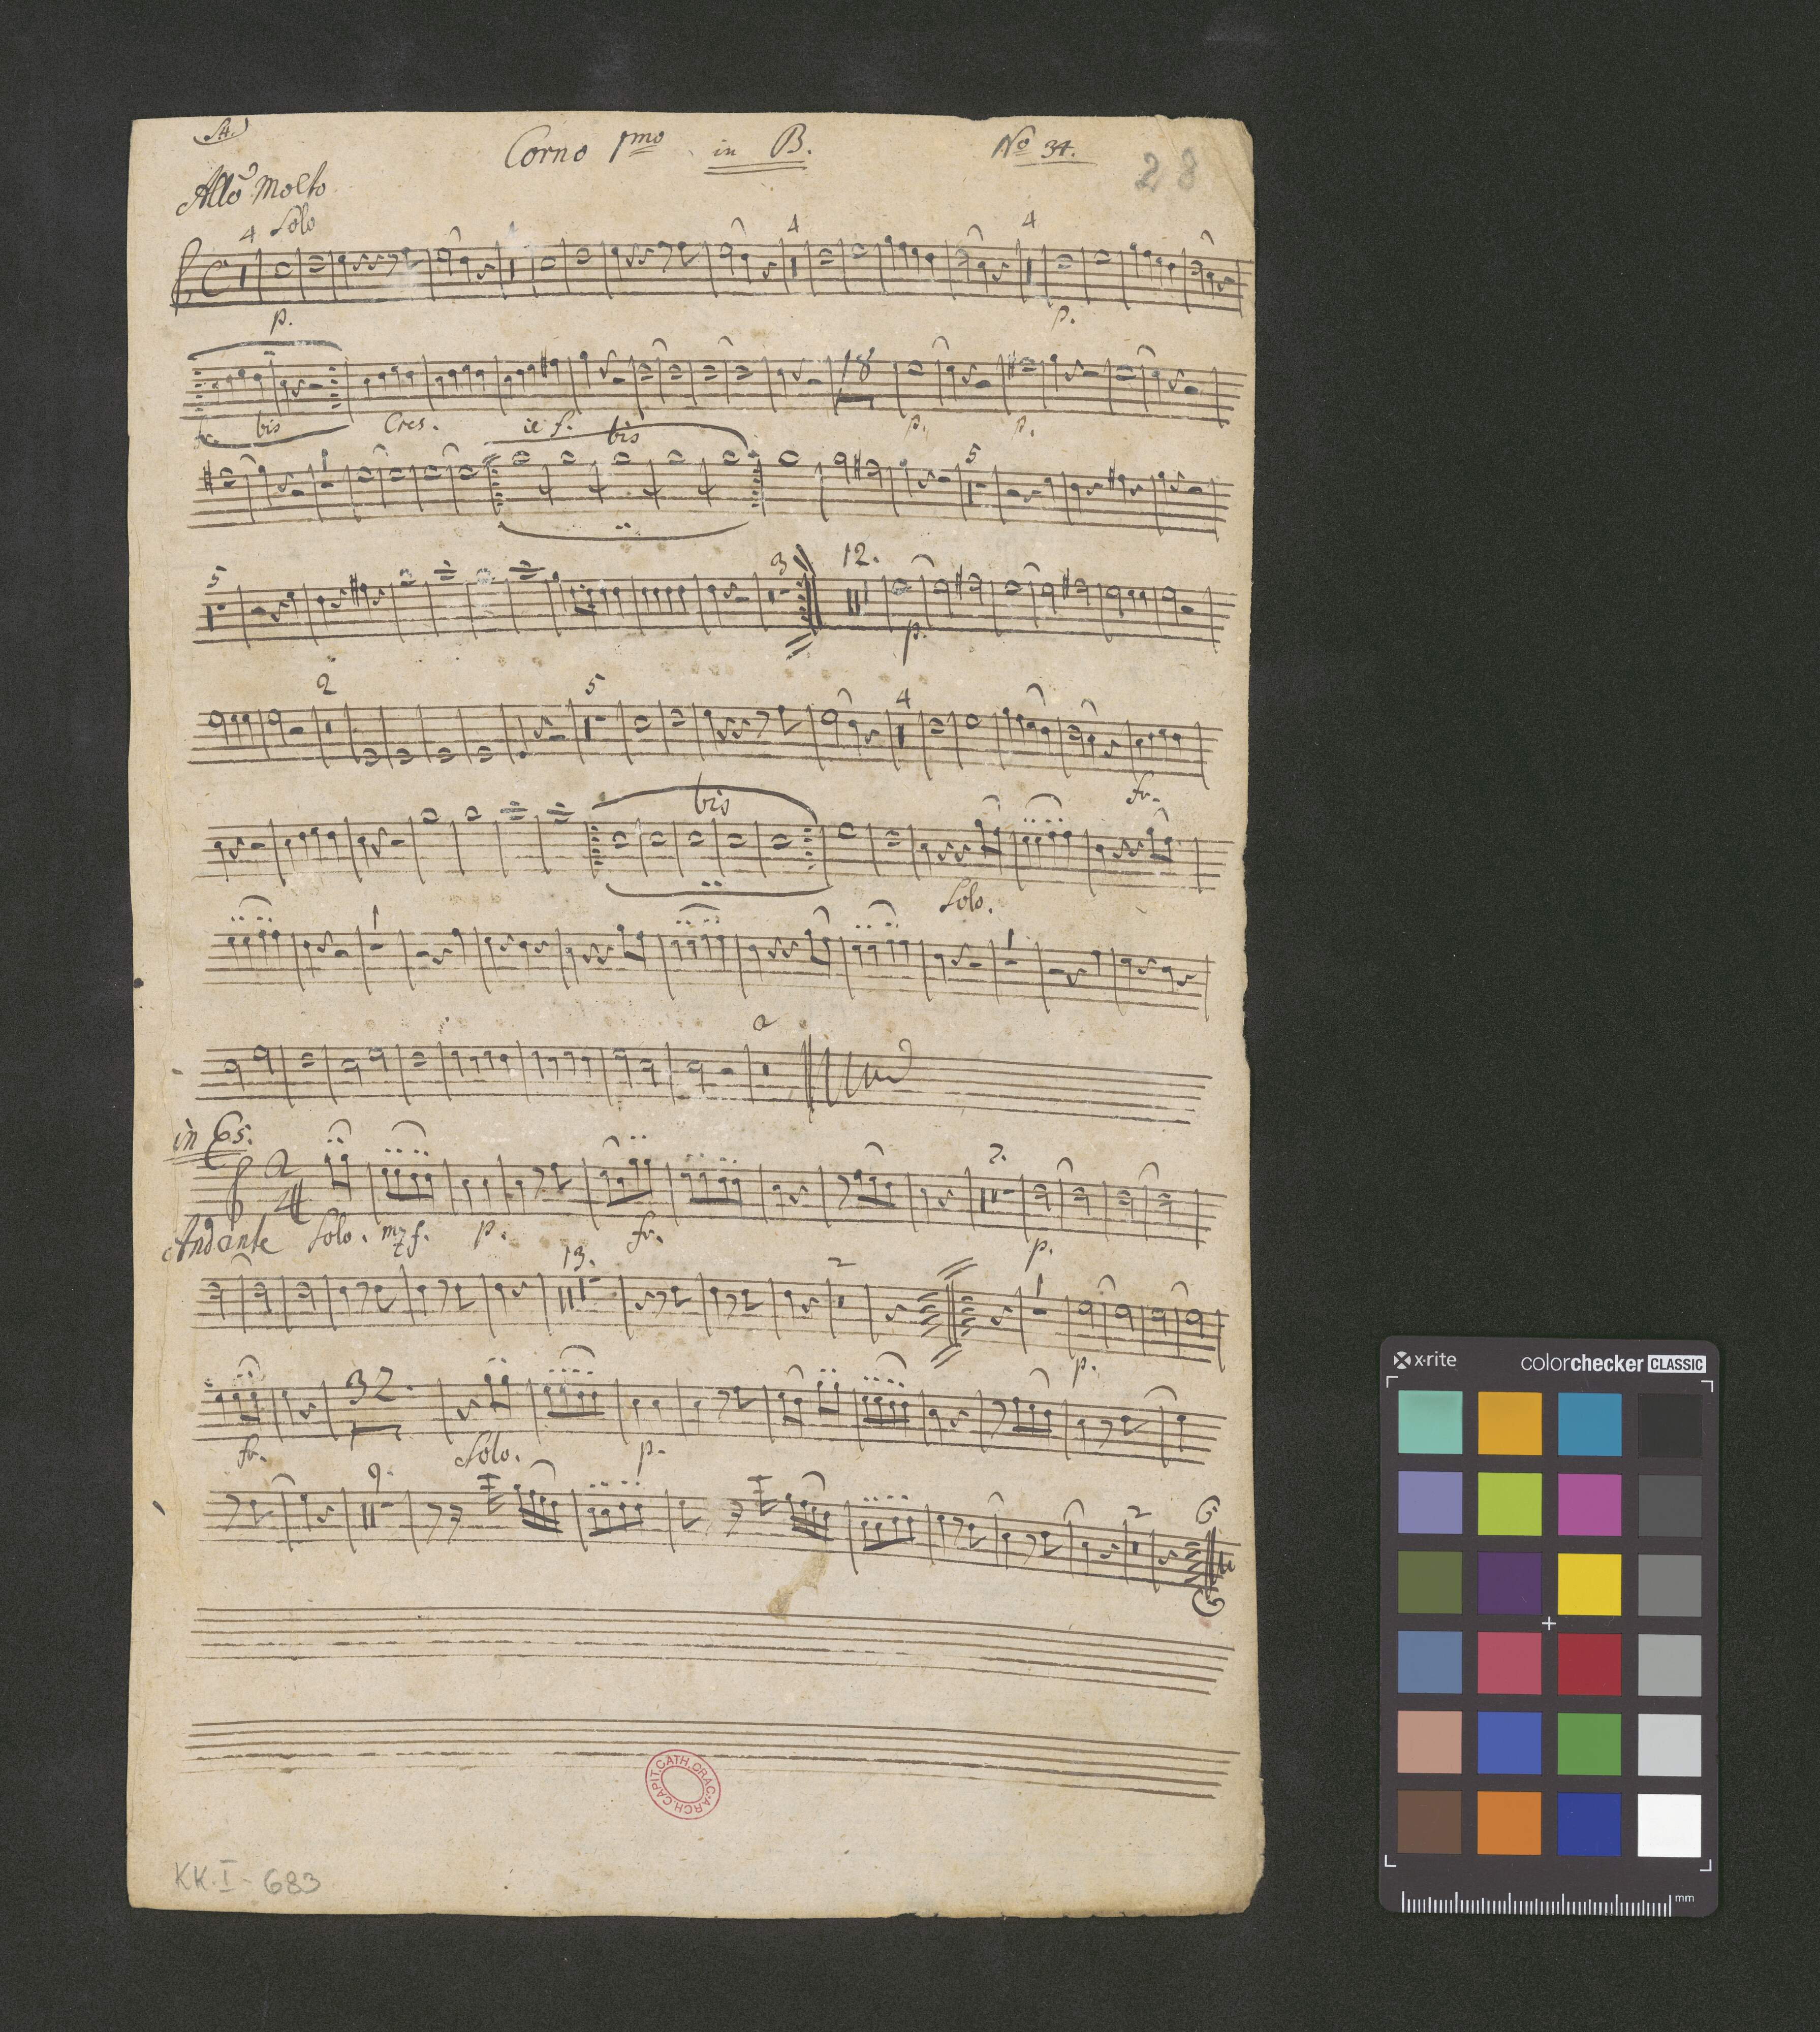 Corno 1mo in B.
No 34.
28
Allo Molto
4 Solo 4 4
p. p.
bis Cres. il f. p. p.
bis
5
5 3 12.
p.
2 5 4
fr.
bis
Solo.
2
in Es.
2
4
2.
Andante Solo. mzf. p. fr. p.
13. 2
p.
32.
fr. Solo. p.
9. 2
ARCH.CAPIT.CATH.CRAC.
KK.I-683
x·rite
colorchecker CLASSIC
mm